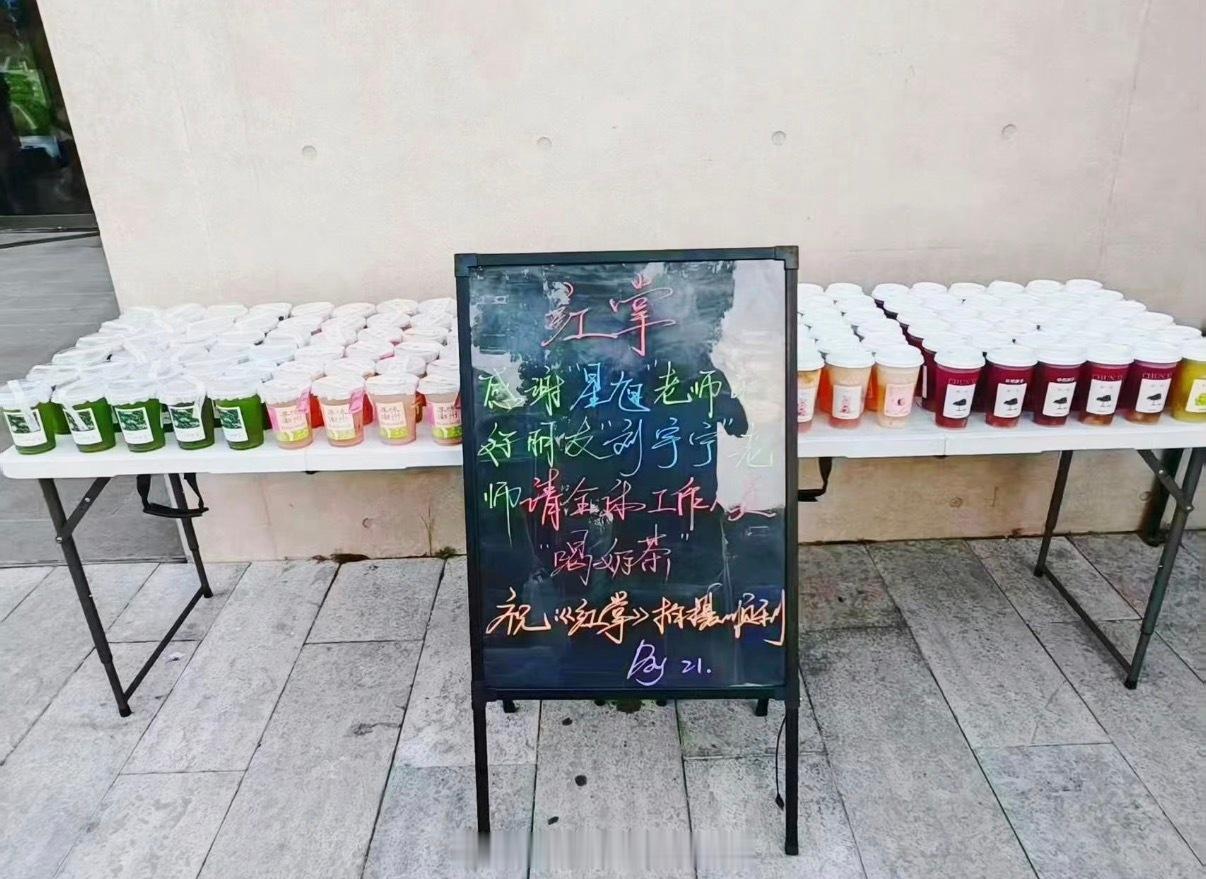 红掌
感谢"星旭"老师
好朋友"刘宇宁"老
师请全体工作人员
"喝好茶"
祝《红掌》拍摄顺利
Day 21.